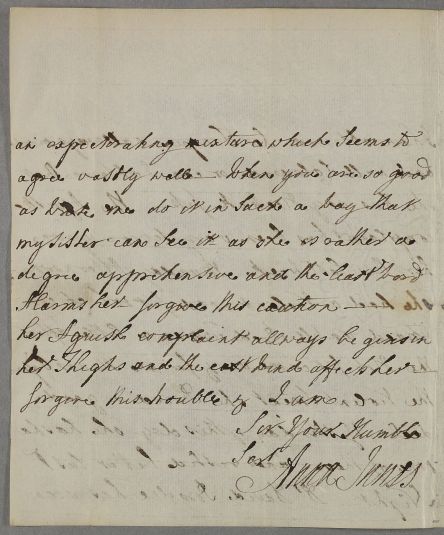 an expectorating mixture which seems to
agree vastly well – When you are so good
as write me do it in such a way that
my sister can see it as she is rather a
degree apprehensive and the least word
Harms her forgive this caution –
her Aguish complaint allways begins in
her Thighs and the east wind affects her
forgive this trouble & I am
Sir Your Humble
Sert
Ann